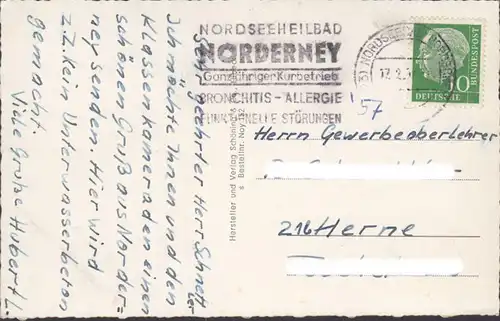 NORDSEEHEILBAD
NORDERNEY
Ganzjähriger Kurbetrieb
BRONCHITIS - ALLERGIE
FUNKTIONELLE STÖRUNGEN
DEUTSCHE
BUNDESPOST
10
57
Sehr geehrter Herr Schnett
ler
Ich möchte Ihnen und den
Klassenkameraden einen
schönen Gruß aus Norder=
ney senden. Hier wird
z.Z. kein Unterwasserbeton
gemacht.
Viele Grüße Hubert L.
Hersteller und Verlag Schöning
Bestellnr. Noy
Herrn Gewerbeoberlehrer
216 Herne